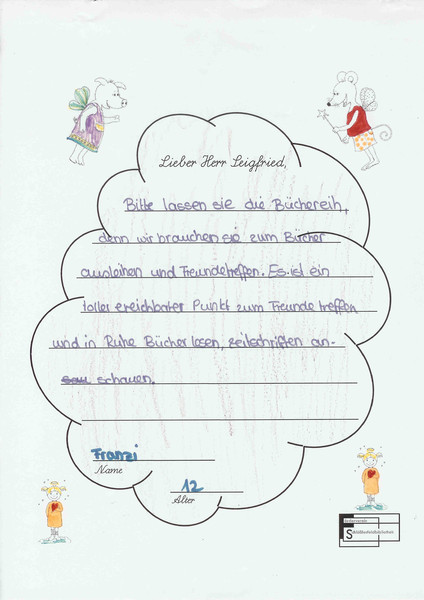 Lieber Herr Leigfried,
Bitte lassen sie die Büchereih,
denn wir brauchen sie zum Bücher
ausleihen und Freundetreffen. Es ist ein
toller ereichbarer Punkt zum Freunde treffen
und in Ruhe Bücher lesen, zeitschriften an-
schauen.
Franzi
Name
12
Alter
Förderverein
Stadtbücherei